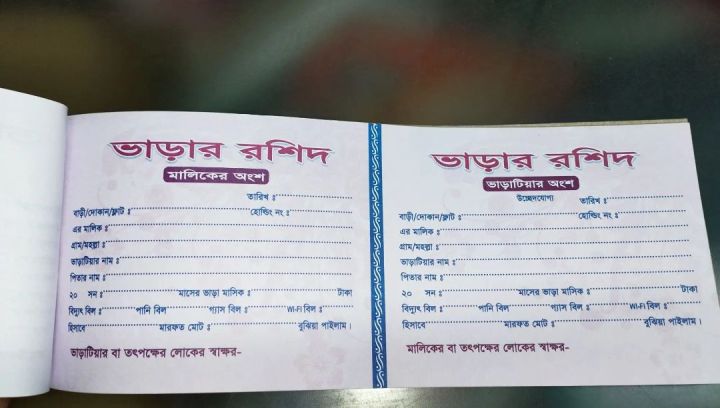 ভাড়ার রশিদ
মালিকের অংশ
তারিখ ঃ
বাড়ী/দোকান/ফ্লাট ঃ হোল্ডিং নং ঃ
এর মালিক ঃ
গ্রাম/মহল্লা ঃ
ভাড়াটিয়ার নাম ঃ
পিতার নাম ঃ
২০ সন ঃ মাসের ভাড়া মাসিক ঃ টাকা
বিদ্যুৎ বিল ঃ পানি বিল গ্যাস বিল ঃ Wi-Fi বিল ঃ
হিসাবে মারফত মোট ঃ বুঝিয়া পাইলাম।
ভাড়াটিয়ার বা তৎপক্ষের লোকের স্বাক্ষর-
ভাড়ার রশিদ
ভাড়াটিয়ার অংশ
উচ্ছেদযোগ্য তারিখ ঃ
বাড়ী/দোকান/ফ্লাট ঃ হোল্ডিং নং ঃ
এর মালিক ঃ
গ্রাম/মহল্লা ঃ
ভাড়াটিয়ার নাম ঃ
পিতার নাম ঃ
২০ সন ঃ মাসের ভাড়া মাসিক ঃ টাকা
বিদ্যুৎ বিল ঃ পানি বিল গ্যাস বিল ঃ Wi-Fi বিল ঃ
হিসাবে মারফত মোট ঃ বুঝিয়া পাইলাম।
মালিকের বা তৎপক্ষের লোকের স্বাক্ষর-